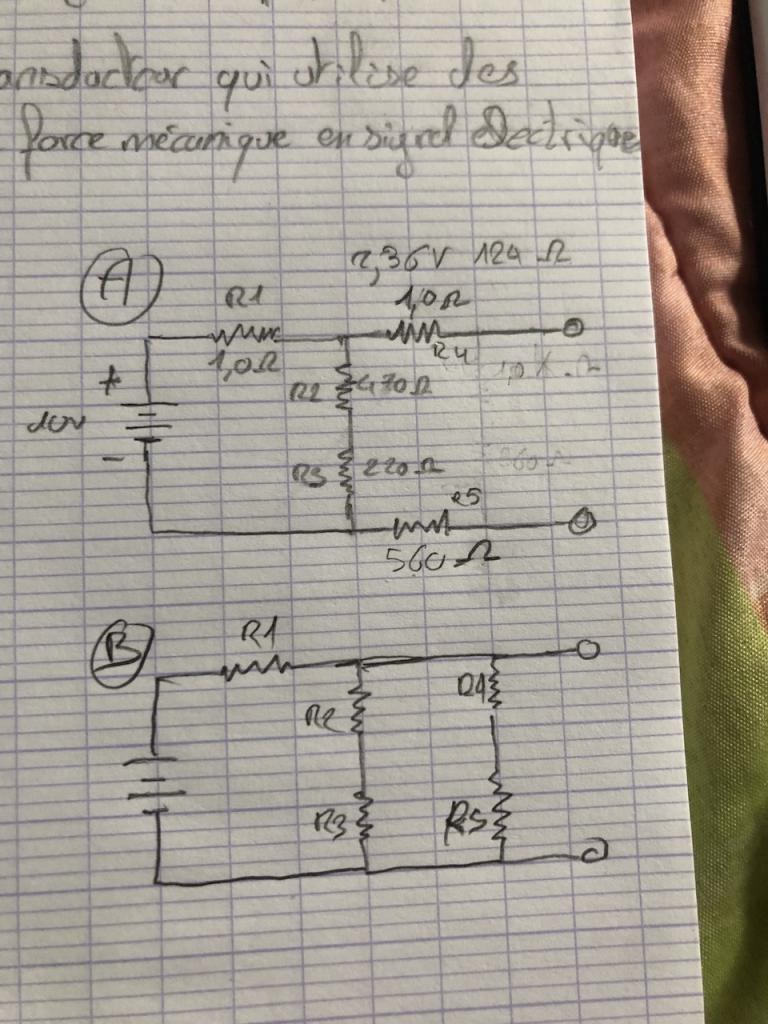 qui utilise des
force mécanique en signal électrique
A
2,36V 124 Ω
R1
1,0Ω
1,0Ω
R4
+
10V
-
R2
470Ω
R3
220Ω
R5
560Ω
B
R1
R2
R4
R3
R5